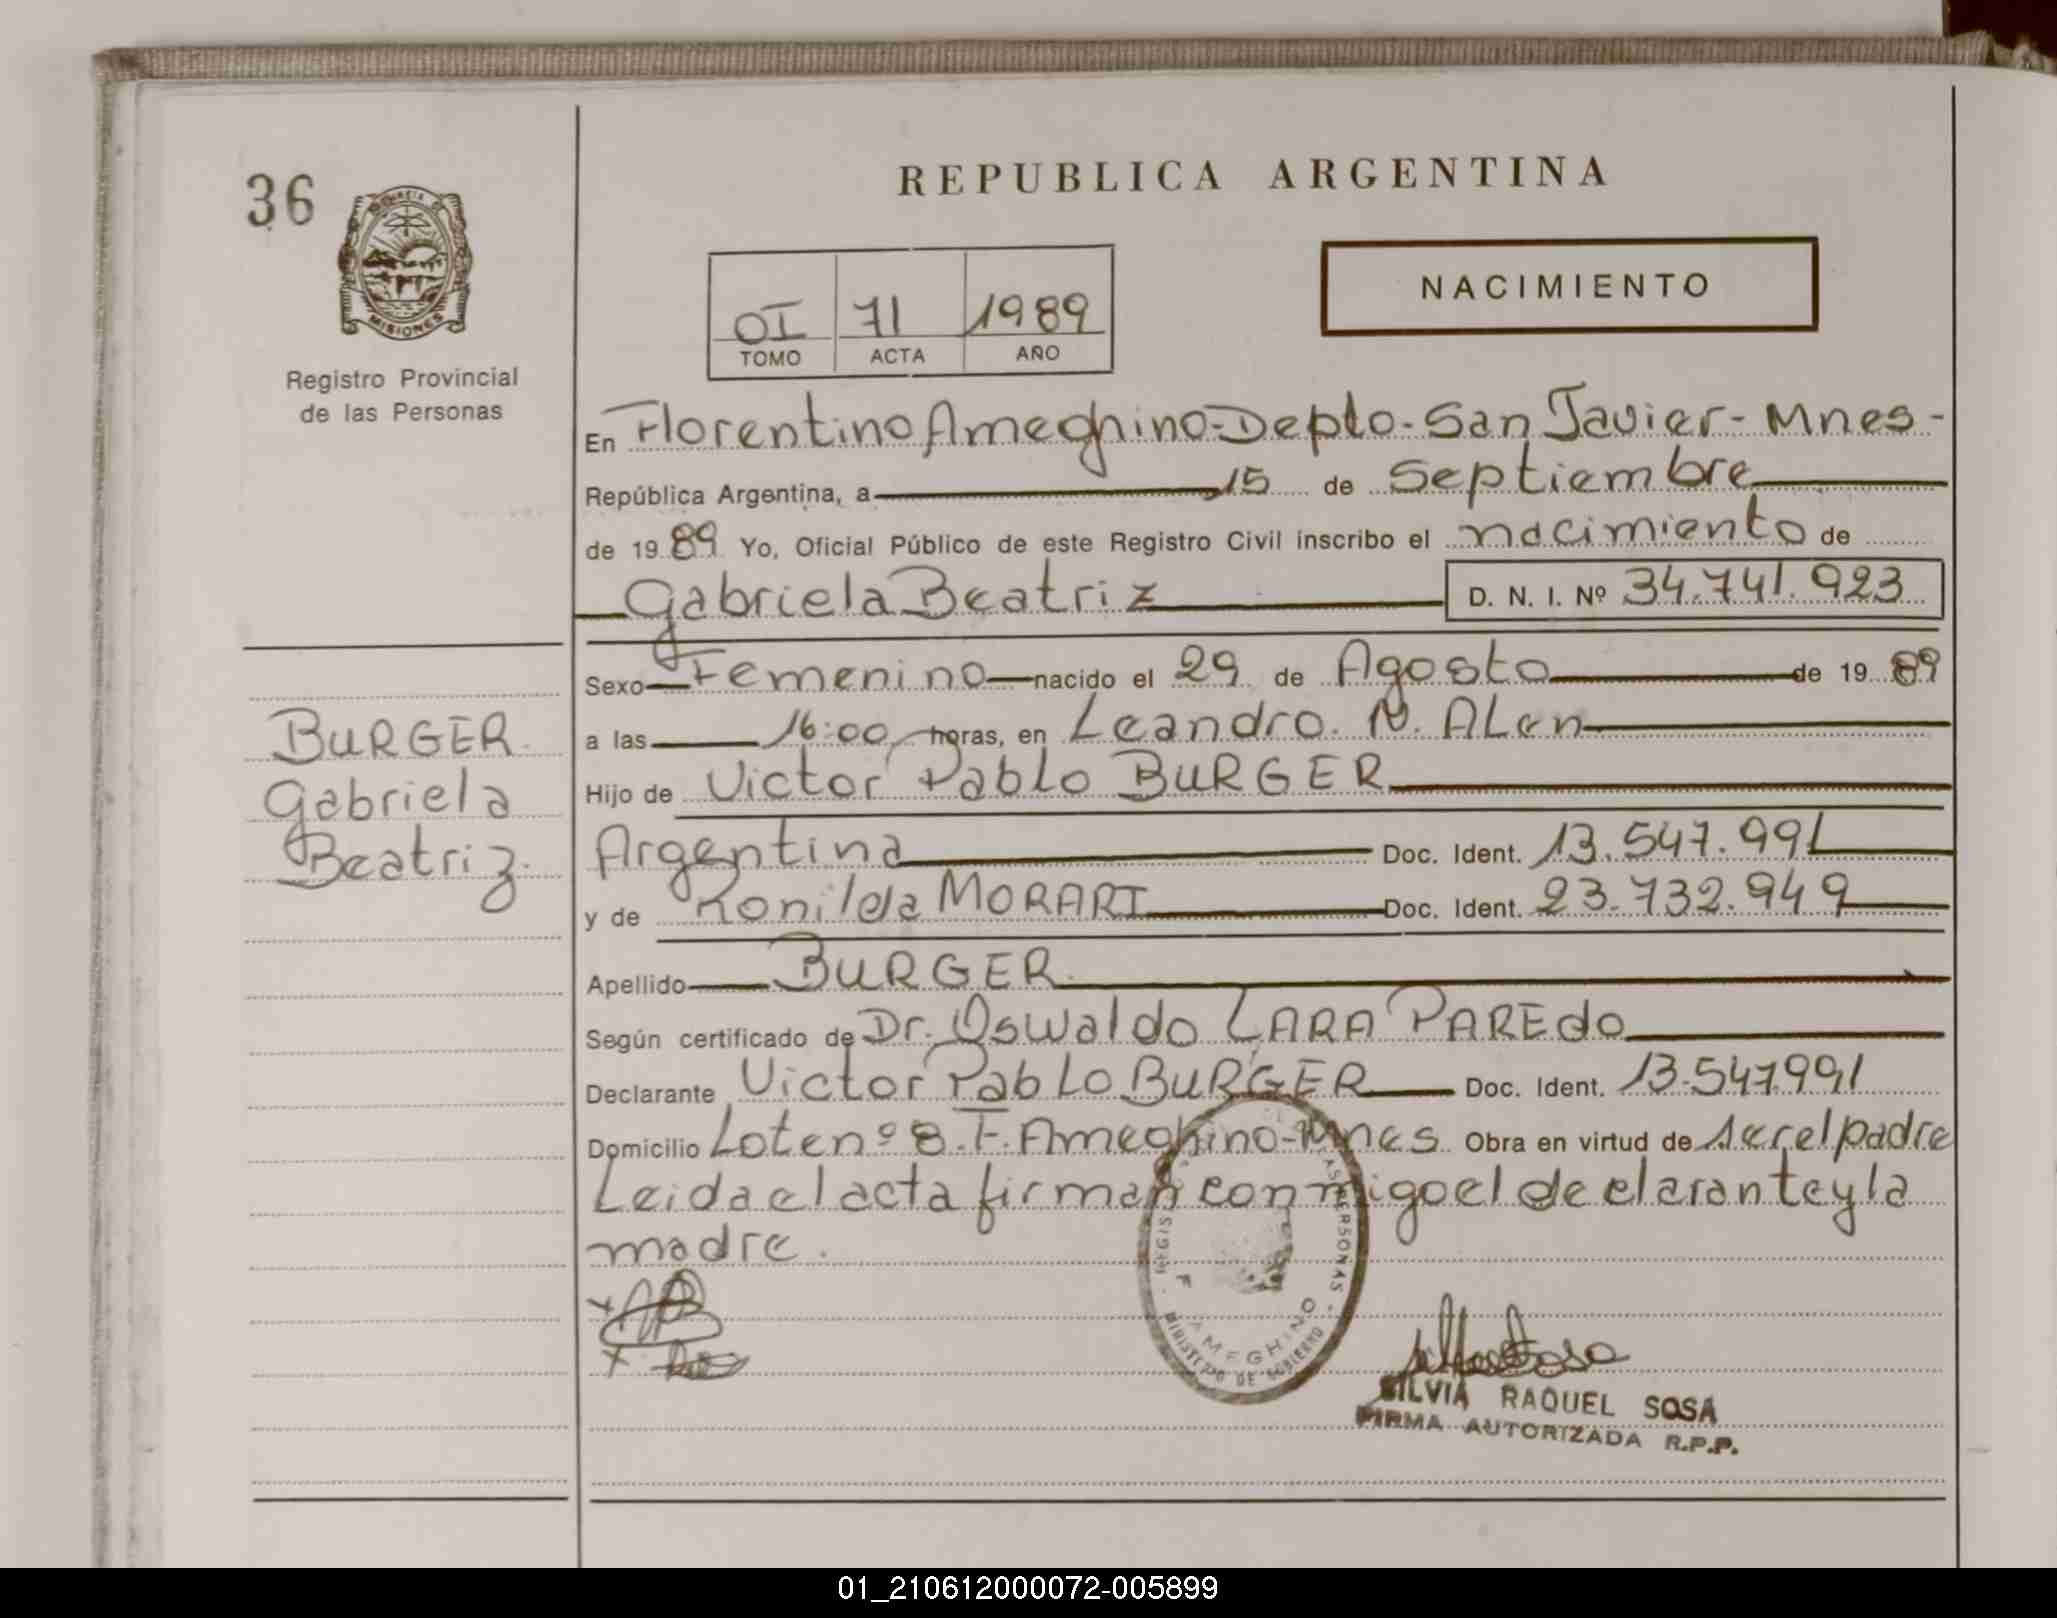 36
REPUBLICA ARGENTINA
MISIONES
Registro Provincial
de las Personas
OI 71 1989
TOMO ACTA AÑO
NACIMIENTO
En Florentino Ameghino-Depto-San Javier-Mnes-
República Argentina, a 15 de Septiembre
de 1989 Yo, Oficial Público de este Registro Civil inscribo el nacimiento de
Gabriela Beatriz D. N. I. Nº 34.741.923
Sexo Femenino nacido el 29 de Agosto de 1989
a las 16:00 horas, en Leandro. N. ALen
Hijo de Victor Pablo BURGER
Argentina Doc. Ident. 13.547.991
y de Ronilda MORARI Doc. Ident. 23.732.949
Apellido BURGER
Según certificado de Dr. Oswaldo LARA PAREdo
Declarante Victor Pablo BURGER Doc. Ident. 13.547.991
Domicilio Lote nº 8. F. Ameghino-Mnes. Obra en virtud de ser el padre
Leida el acta firman conmigo el declarante y la
madre.
BURGER
Gabriela
Beatriz.
F AMEGHINO
MINISTERIO DE GOBIERNO
SILVIA RAQUEL SOSA
FIRMA AUTORIZADA R.P.P.
01_210612000072-005899